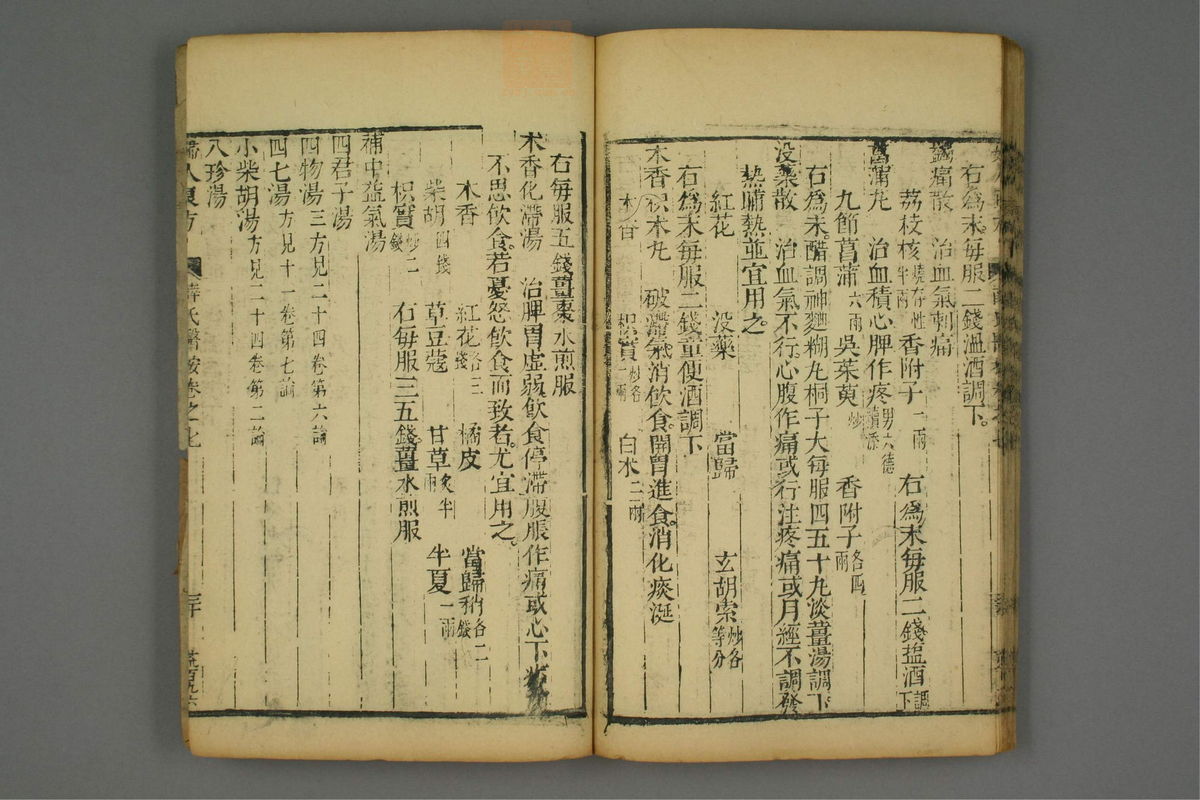 右爲末每服二錢溫酒調下。
痛散 治血氣刺痛
荔枝核燒存性半兩 香附子一兩 右爲末每服二錢盐酒調下
菖蒲丸 治血積心脾作疼男六德續添
九節菖蒲六兩 吳茱萸炒 香附子各四兩
右爲末醋調神麯糊丸桐子大每服四五十丸淡薑湯調下。
没藥散 治血氣不行心腹作痛或行注疼痛或月經不調發
熱晡熱並宜用之。
紅花 没藥 當歸 玄胡索炒各等分
右爲末每服二錢童便酒調下
木香枳术丸 破滯氣消飲食。開胃進食。消化痰涎
木香 枳實炒各一兩 白术二兩
右每服五錢薑棗水煎服
木香化滯湯 治脾胃虛弱飲食停滯腹脹作痛或心下
不思飲食。若憂怒飲食而致者。尤宜用之。
木香 紅花各三錢 橘皮 當歸稍各二錢
柴胡四錢 草豆蔻 甘草炙半兩 半夏一兩
枳實炒二錢 右每服三五錢薑水煎服
補中益氣湯
四君子湯
四物湯三方見二十四卷第六論
四七湯方見十一卷第七論
小柴胡湯方見二十四卷第二論
八珍湯
婦人良方 薛氏醫按卷之七